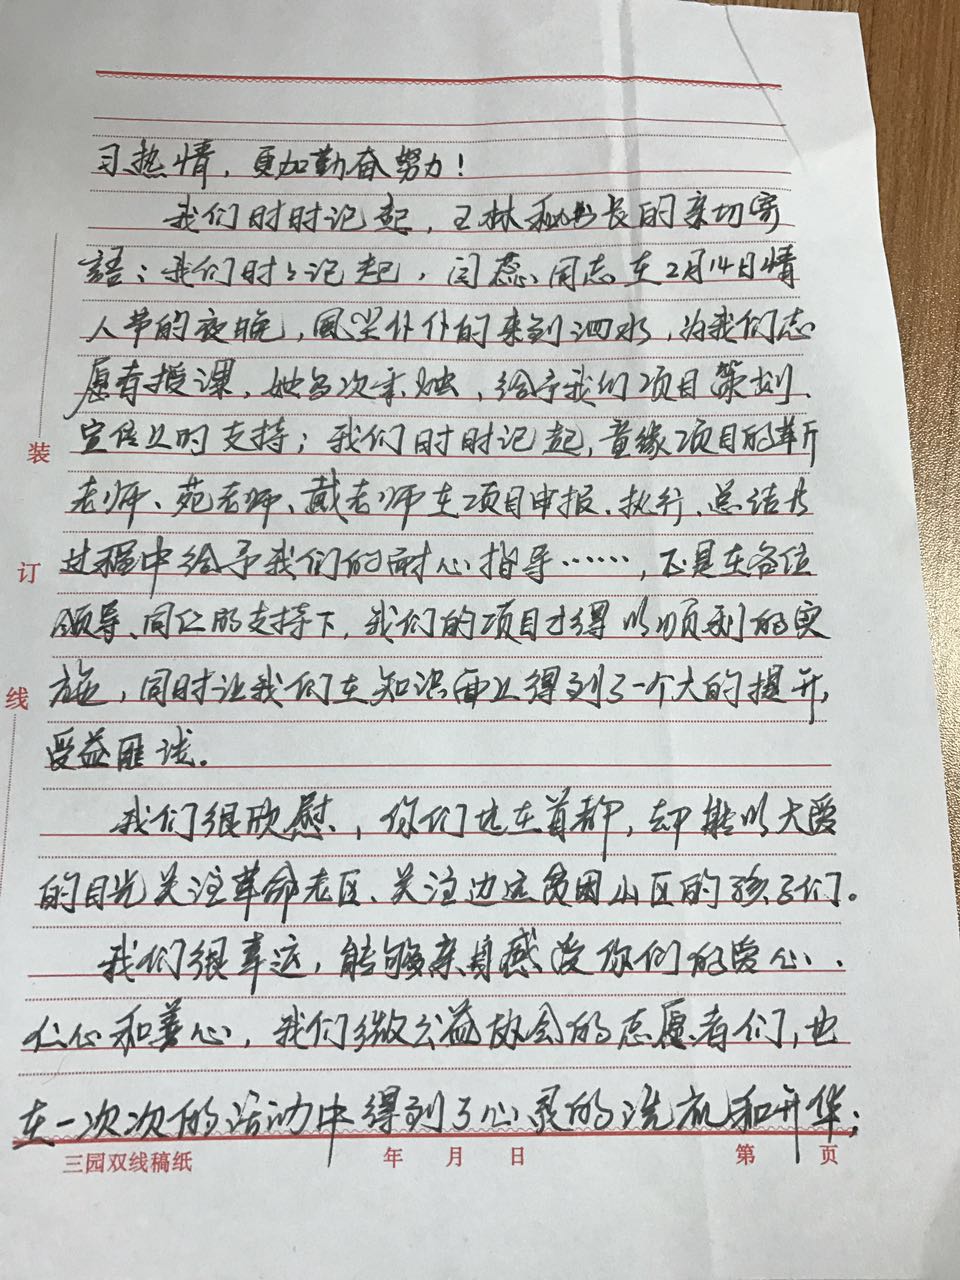 习热情，更加勤奋努力！
我们时时记起，王林秘书长的亲切寄
語；我们时时记起，闫蕊同志在2月14日情
人节的夜晚，風尘仆仆的来到泗水，为我们志
愿者授课，她多次来，给予我们项目策划、
宣传上的支持；我们时时记起，童缘项目的靳
老师、苑老师、戴老师在项目申报、执行、总结
过程中给予我们的耐心指导……，正是在各位
领导、同仁的支持下，我们的项目才得以顺利的实
施，同时让我们在知识面上得到了一个大的提升，
受益匪浅。
我们很欣慰，你们远在首都，却能以大爱
的目光关注革命老区、关注边远贫困山区的孩子们。
我们很幸运，能够亲身感受你们的爱心、
仁心和善心，我们微公益协会的志愿者们，也
在一次次的活动中得到了心灵的洗礼和升华；
装
订
线
三园双线稿纸 年 月 日 第 页